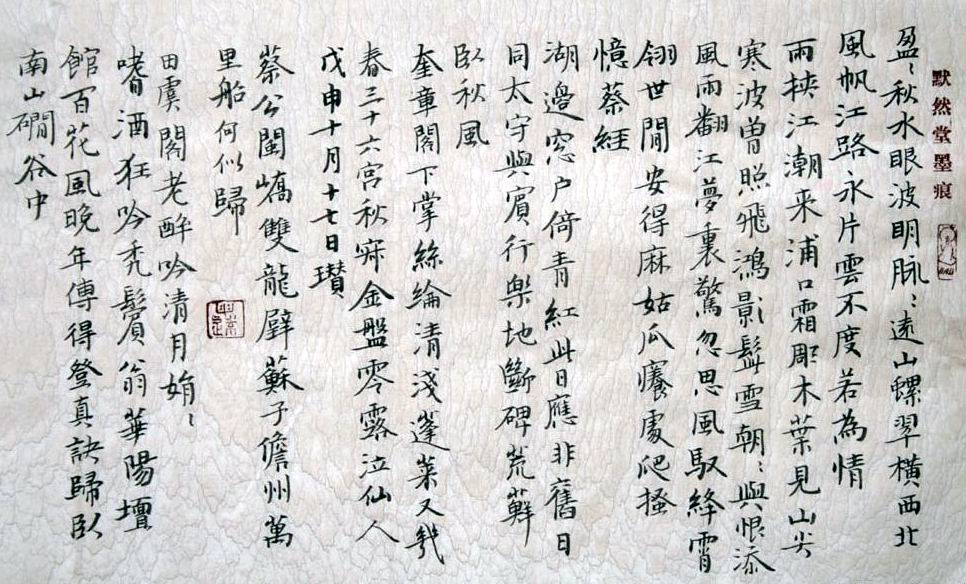 默然堂墨痕
盈〻秋水眼波明脉〻遠山螺翠橫西北
風帆江路永片雲不度若為情
雨挾江潮来浦口霜彫木葉見山尖
寒波曾照飛鴻影髩雪朝〻與恨添
風雨翻江夢裏驚忽思風馭絳霄
翎世間安得麻姑爪癢處爬搔
憶蔡經
湖邉窓户倚青紅此日應非舊日
同太守與賓行樂地斷碑荒蘚
臥秋風
奎章閣下掌絲綸清淺蓬萊又幾
春三十六宮秋寂金盤零露泣仙人
戊申十月十七日瓚
蔡公閩嶠雙龍璧蘇子儋州萬
里船何似歸
田虞閣老醉吟清月娟〻
嗜酒狂吟禿鬢翁華陽壇
館百花風晚年傳得登真訣歸臥
南山磵谷中